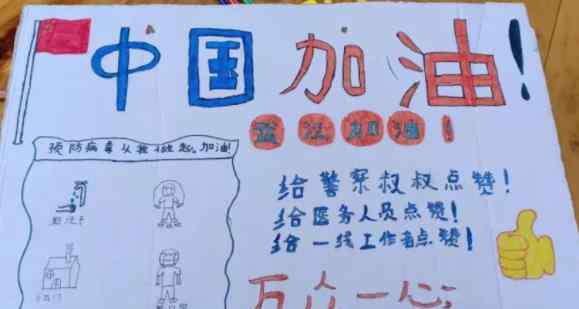 中国加油！
蓝江加油！
预防病毒从我做起，加油！
给警察叔叔点赞！
给医务人员点赞！
给一线工作者点赞！
勤洗手
万众一心；